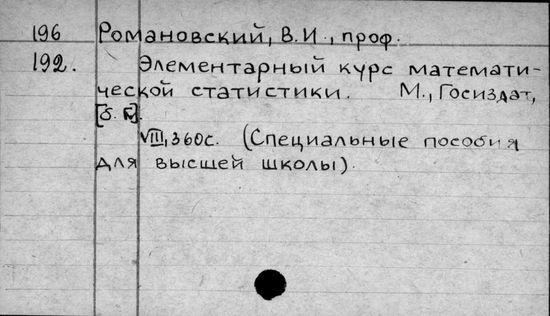 196 Романовский, В.И., проф.
192. Элементарный курс математи-
ческой статистики. М., Госиздат,
[б. г.].
VIII, 360с. (Специальные пособия
для высшей школы).